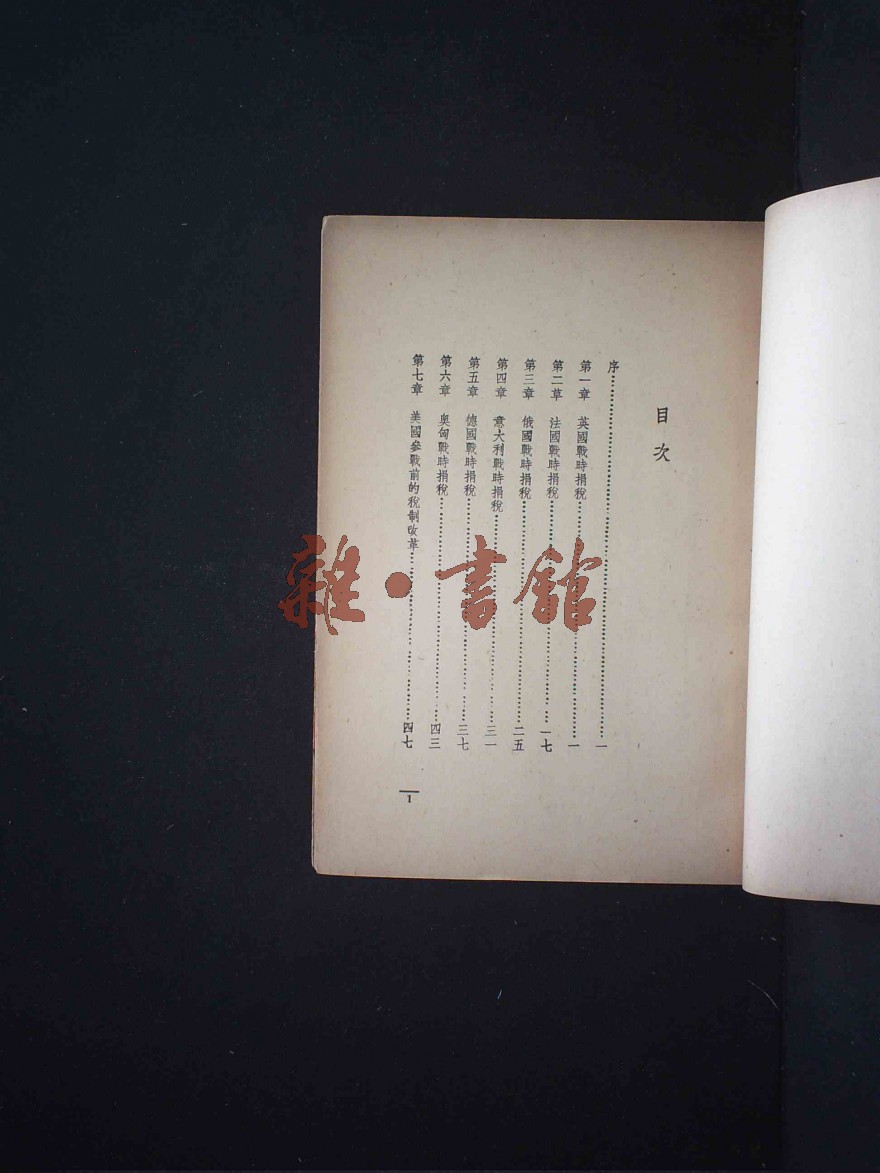 目次
序……一
第一章 英國戰時捐稅……一
第二草 法國戰時捐稅……一七
第三章 俄國戰時捐稅……二五
第四章 意大利戰時捐稅……三一
第五章 德國戰時捐稅……三七
第六章 奧匈戰時捐稅……四三
第七章 美國參戰前的稅制改革……四七
1
雜·書館